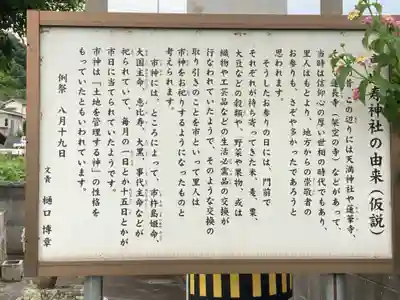 寿神社の由来(仮説)
この辺りには天満神社や蓮華寺、
長寺(架空の寺)などがあって、
当時は信仰心の篤い世相の時代でもあり、
里人はもとより、地方からの崇敬者の
お参りも、さぞや多かったであろうと
思われます。
そうしたお参りの日には、門前で
それぞれが持ち寄ってきた米、麦、粟、
大豆などの穀類や、野菜や果物、或は
織物や工芸品など生活必需品の交換が
行なわれていたようで、そのような交換の
取り引きのことを市といって里人は
市神をお祀りするようになったものと
考えられます。
市神には、ところによって、市杵島姫命、
大国主命、恵比寿、大黒、事代主命などが
祀られていて、毎月の一日とか十五日とかが
市日に当てられていたようです。
市神は「土地を管理する神」の性格を
もっていたともいわれています。
例祭 八月十九日
文責 樋口博章